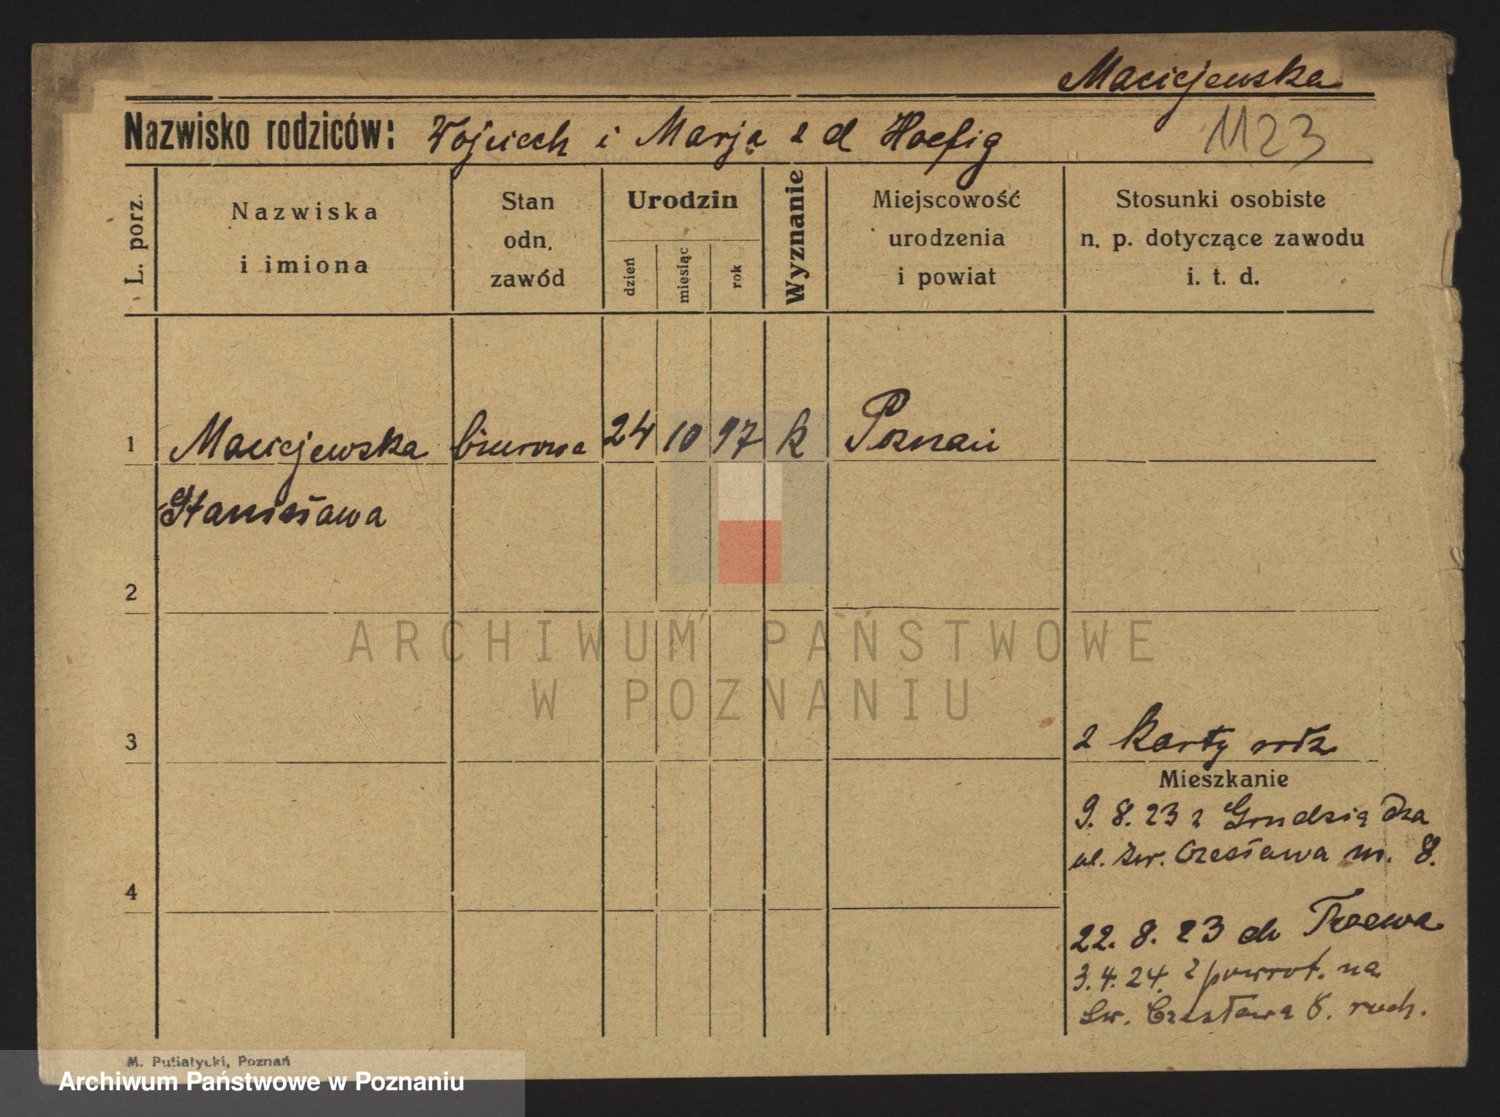 Maciejewska
Nazwisko rodziców: Wojciech i Marja z d Hoefig
1123
L. porz.
Nazwiska
i imiona
Stan
odn.
zawód
Urodzin
dzień
miesiąc
rok
Wyznanie
Miejscowość
urodzenia
i powiat
Stosunki osobiste
n. p. dotyczące zawodu
i. t. d.
1 Maciejewska biurowa 24 10 97 k Poznań
Stanisława
2
ARCHIWUM PAŃSTWOWE
W POZNANIU
3
2 karty rodz
Mieszkanie
9. 8. 23 z Grudziądza
ul. św. Czesława m. 8.
4
22. 8. 23 do
3. 4. 24. z powrot. na
św. Czesława 8. ruch.
M. Putiatycki, Poznań
Archiwum Państwowe w Poznaniu